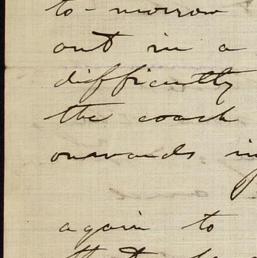 to-morrow
out in a
difficultly
the coach
onwards in
again to